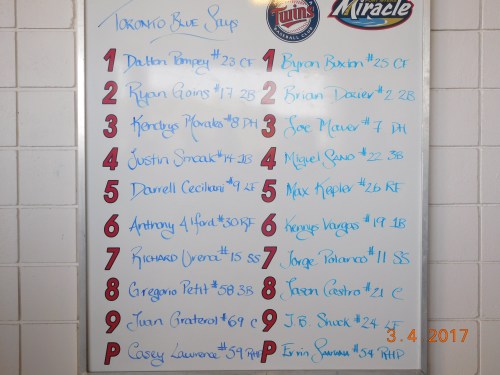 TORONTO BLUE JAYS
Twins
BASEBALL CLUB
Miracle
1 Dalton Pompey #23 CF
1 Byron Buxton #25 CF
2 Ryan Goins #17 2B
2 Brian Dozier #2 2B
3 Kendrys Morales #8 DH
3 Joe Mauer #7 DH
4 Justin Smoak #14 1B
4 Miguel Sano #22 3B
5 Darrell Ceciliani #9 LF
5 Max Kepler #26 RF
6 Anthony Alford #30 RF
6 Kennys Vargas #19 1B
7 RICHARD Urena #15 SS
7 Jorge Polanco #11 SS
8 Gregorio Petit #58 3B
8 Jason Castro #21 C
9 Juan Graterol #69 C
9 J.B. Shuck #24 LF
P Casey Lawrence #59 RHP
P Ervin Santana #54 RHP
3.4.2017